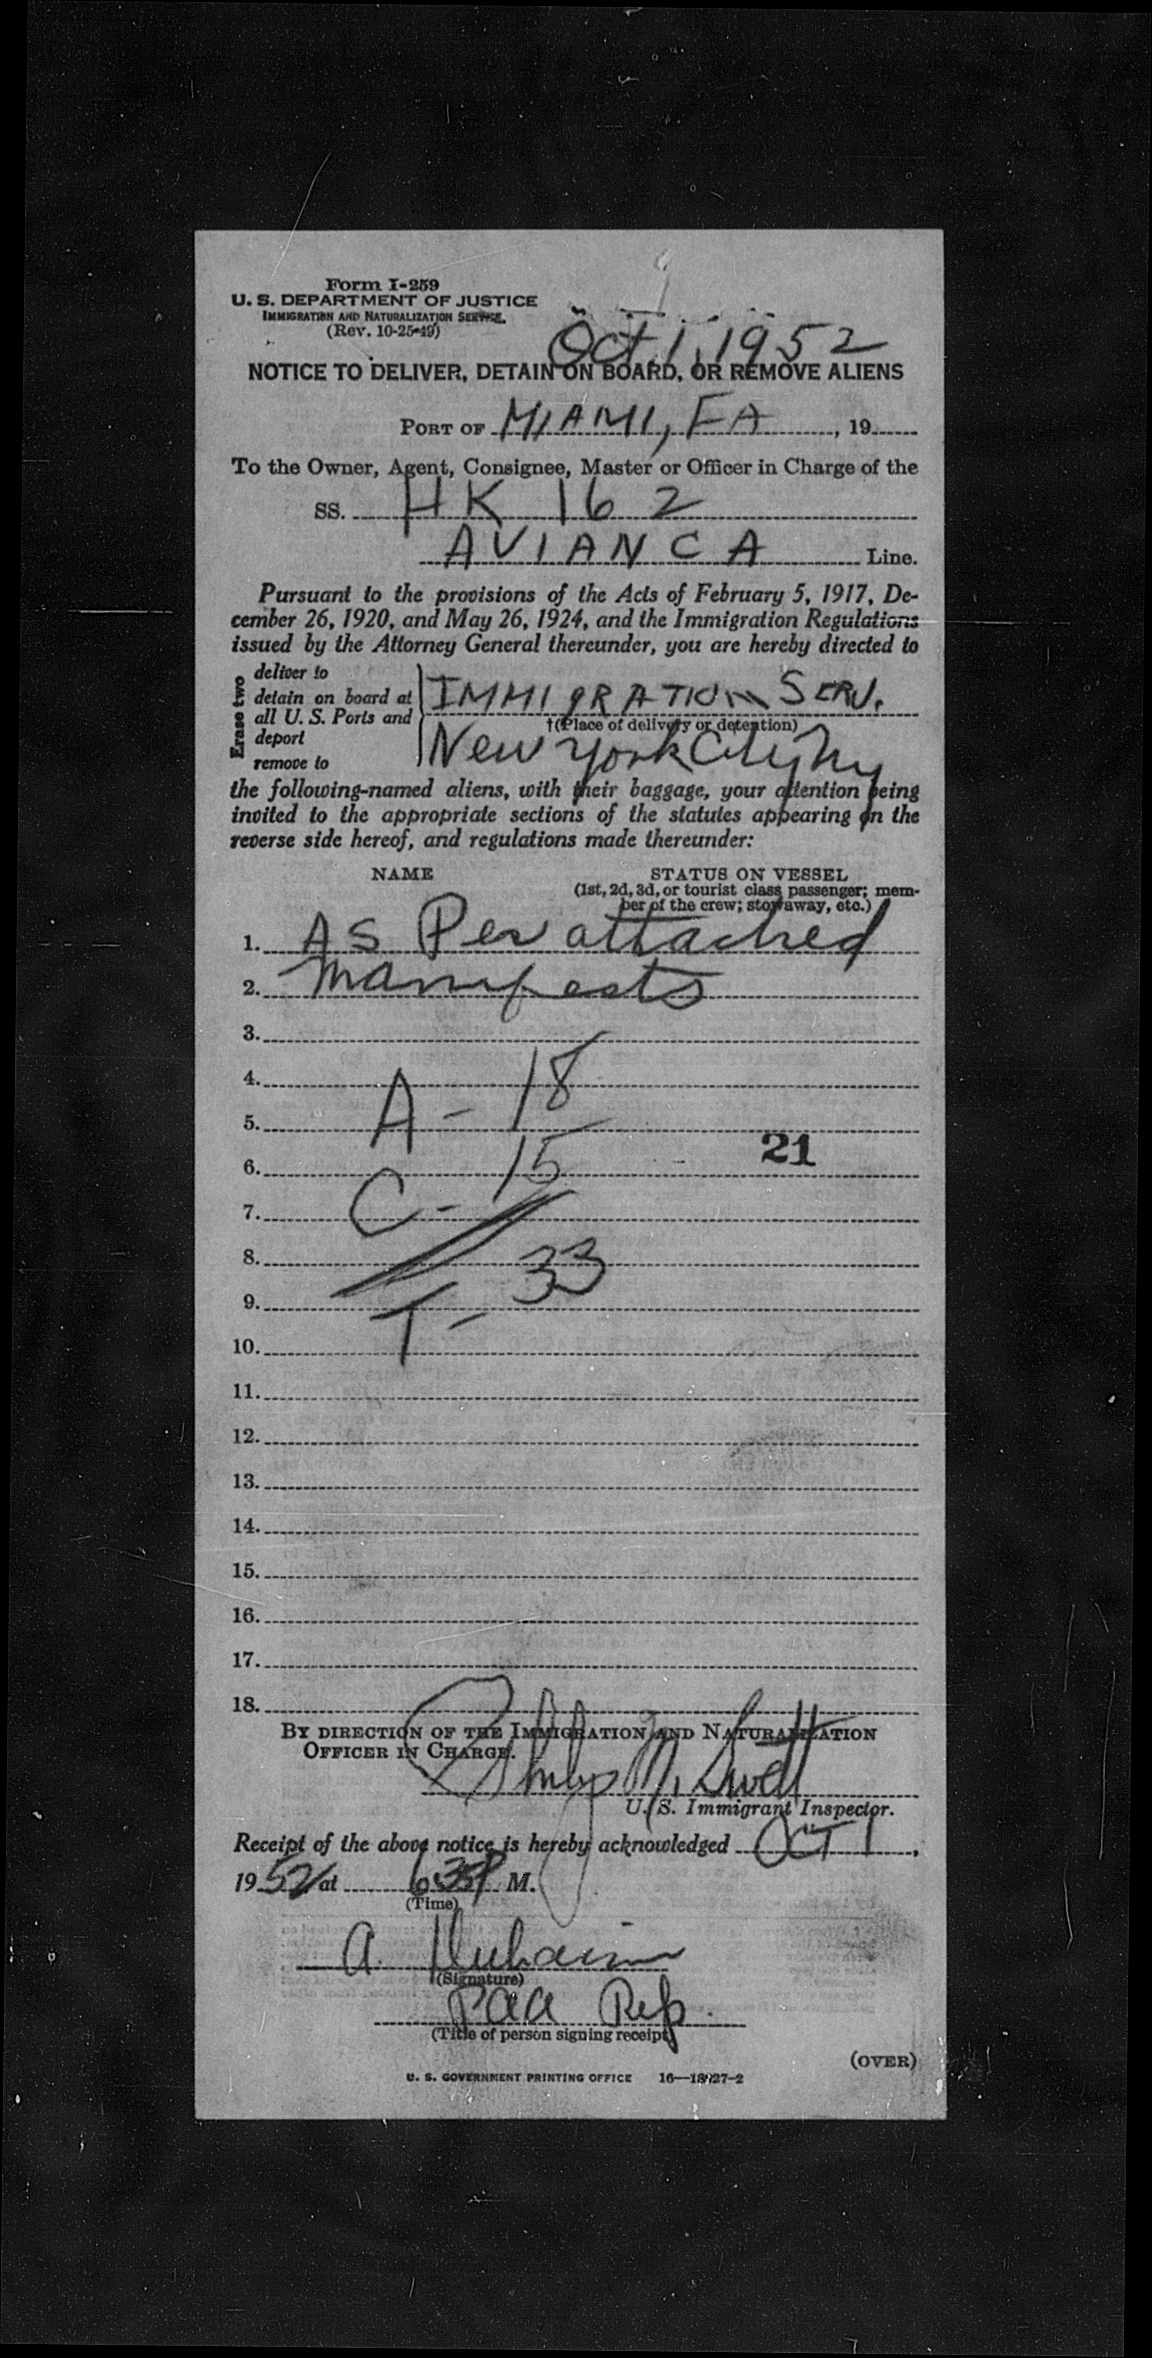 Form I-259
U. S. DEPARTMENT OF JUSTICE
IMMIGRATION AND NATURALIZATION SERVICE
(Rev. 10-25-49)
Oct. 1, 1952
NOTICE TO DELIVER, DETAIN ON BOARD, OR REMOVE ALIENS
PORT OF MIAMI, FA, 19
To the Owner, Agent, Consignee, Master or Officer in Charge of the
SS. HK 162
AVIANCA Line.
Pursuant to the provisions of the Acts of February 5, 1917, De-
cember 26, 1920, and May 26, 1924, and the Immigration Regulations
issued by the Attorney General thereunder, you are hereby directed to
Erase two
deliver to
detain on board at
all U. S. Ports and
deport
remove to
IMMIGRATION SERV.
†(Place of delivery or detention)
New York City Ny
the following-named aliens, with their baggage, your attention being
invited to the appropriate sections of the statutes appearing on the
reverse side hereof, and regulations made thereunder:
NAME STATUS ON VESSEL
(1st, 2d, 3d, or tourist class passenger; mem-
ber of the crew; stowaway, etc.)
1. AS Per attached
2. manifests
3.
4.
A - 18
5.
21
6.
C - 15
7.
8.
T - 33
9.
10.
11.
12.
13.
14.
15.
16.
17.
18.
BY DIRECTION OF THE IMMIGRATION AND NATURALIZATION
OFFICER IN CHARGE.
M.
U. S. Immigrant Inspector.
Receipt of the above notice is hereby acknowledged OCT 1,
1952 at M.
(Time)
A.
(Signature)
Paa Rep.
(Title of person signing receipt)
(OVER)
U. S. GOVERNMENT PRINTING OFFICE